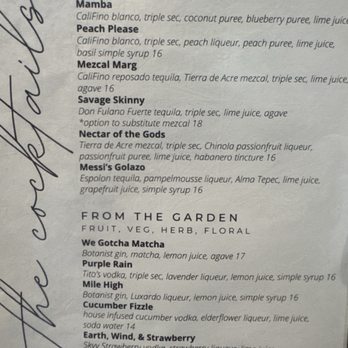 the cocktails
Mamba
CaliFino blanco, triple sec, coconut puree, blueberry puree, lime juice
Peach Please
CaliFino blanco, triple sec, peach liqueur, peach puree, lime juice,
basil simple syrup 16
Mezcal Marg
CaliFino reposado tequila, Tierra de Acre mezcal, triple sec, lime juice,
agave 16
Savage Skinny
Don Fulano Fuerte tequila, triple sec, lime juice, agave
*option to substitute mezcal 18
Nectar of the Gods
Tierra de Acre mezcal, triple sec, Chinola passionfruit liqueur,
passionfruit puree, lime juice, habanero tincture 16
Messi's Golazo
Espolon tequila, pampelmousse liqueur, Alma Tepec, lime juice,
grapefruit juice, simple syrup 16
FROM THE GARDEN
FRUIT, VEG, HERB, FLORAL
We Gotcha Matcha
Botanist gin, matcha, lemon juice, agave 17
Purple Rain
Tito's vodka, triple sec, lavender liqueur, lemon juice, simple syrup 16
Mile High
Botanist gin, Luxardo liqueur, lemon juice, simple syrup 16
Cucumber Fizzle
house infused cucumber vodka, elderflower liqueur, lime juice,
soda water 14
Earth, Wind, & Strawberry
Skyy Strawberry vodka, strawberry liqueur, lime juice